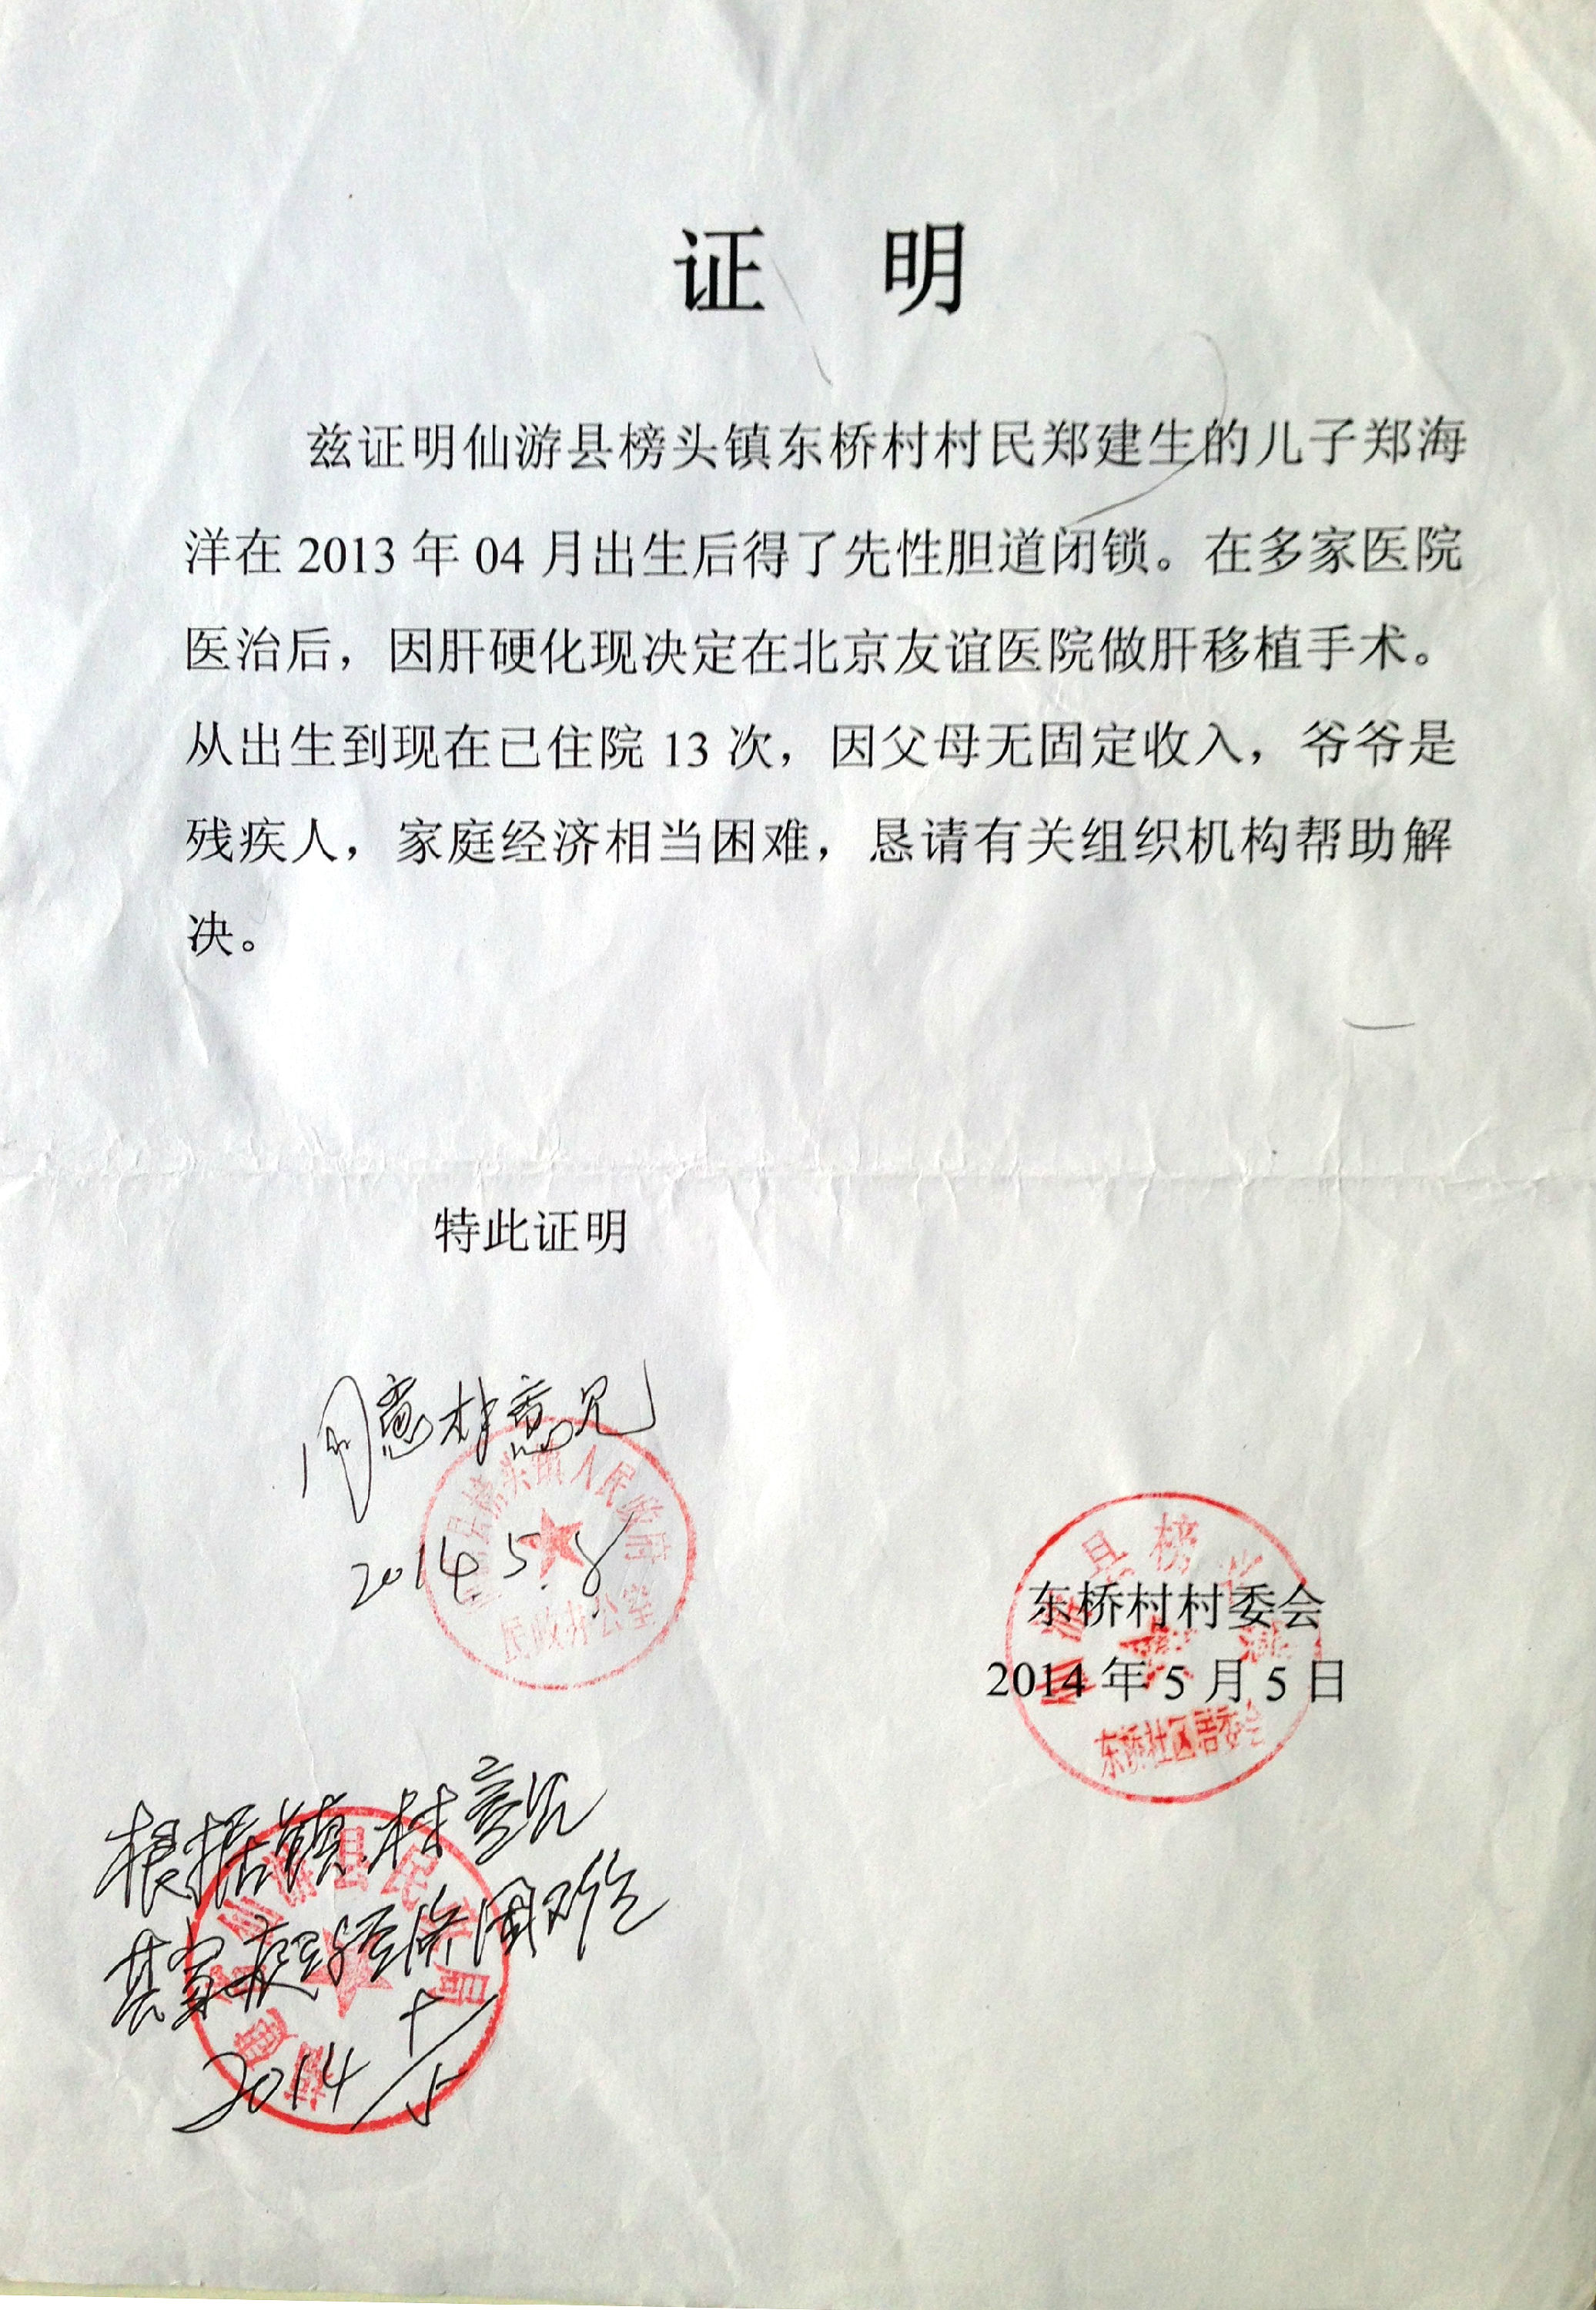 证 明
兹证明仙游县榜头镇东桥村村民郑建生的儿子郑海
洋在 2013 年 04 月出生后得了先性胆道闭锁。在多家医院
医治后，因肝硬化现决定在北京友谊医院做肝移植手术。
从出生到现在已住院 13 次，因父母无固定收入，爷爷是
残疾人，家庭经济相当困难，恳请有关组织机构帮助解
决。
特此证明
同意村意见
县榜头镇人民政府
2014.5.8
民政办公室
县榜
东桥村村委会
2014 年 5 月 5 日
东桥社区居委会
根据镇.村意见
游县民
其家庭经济困难
局
2014